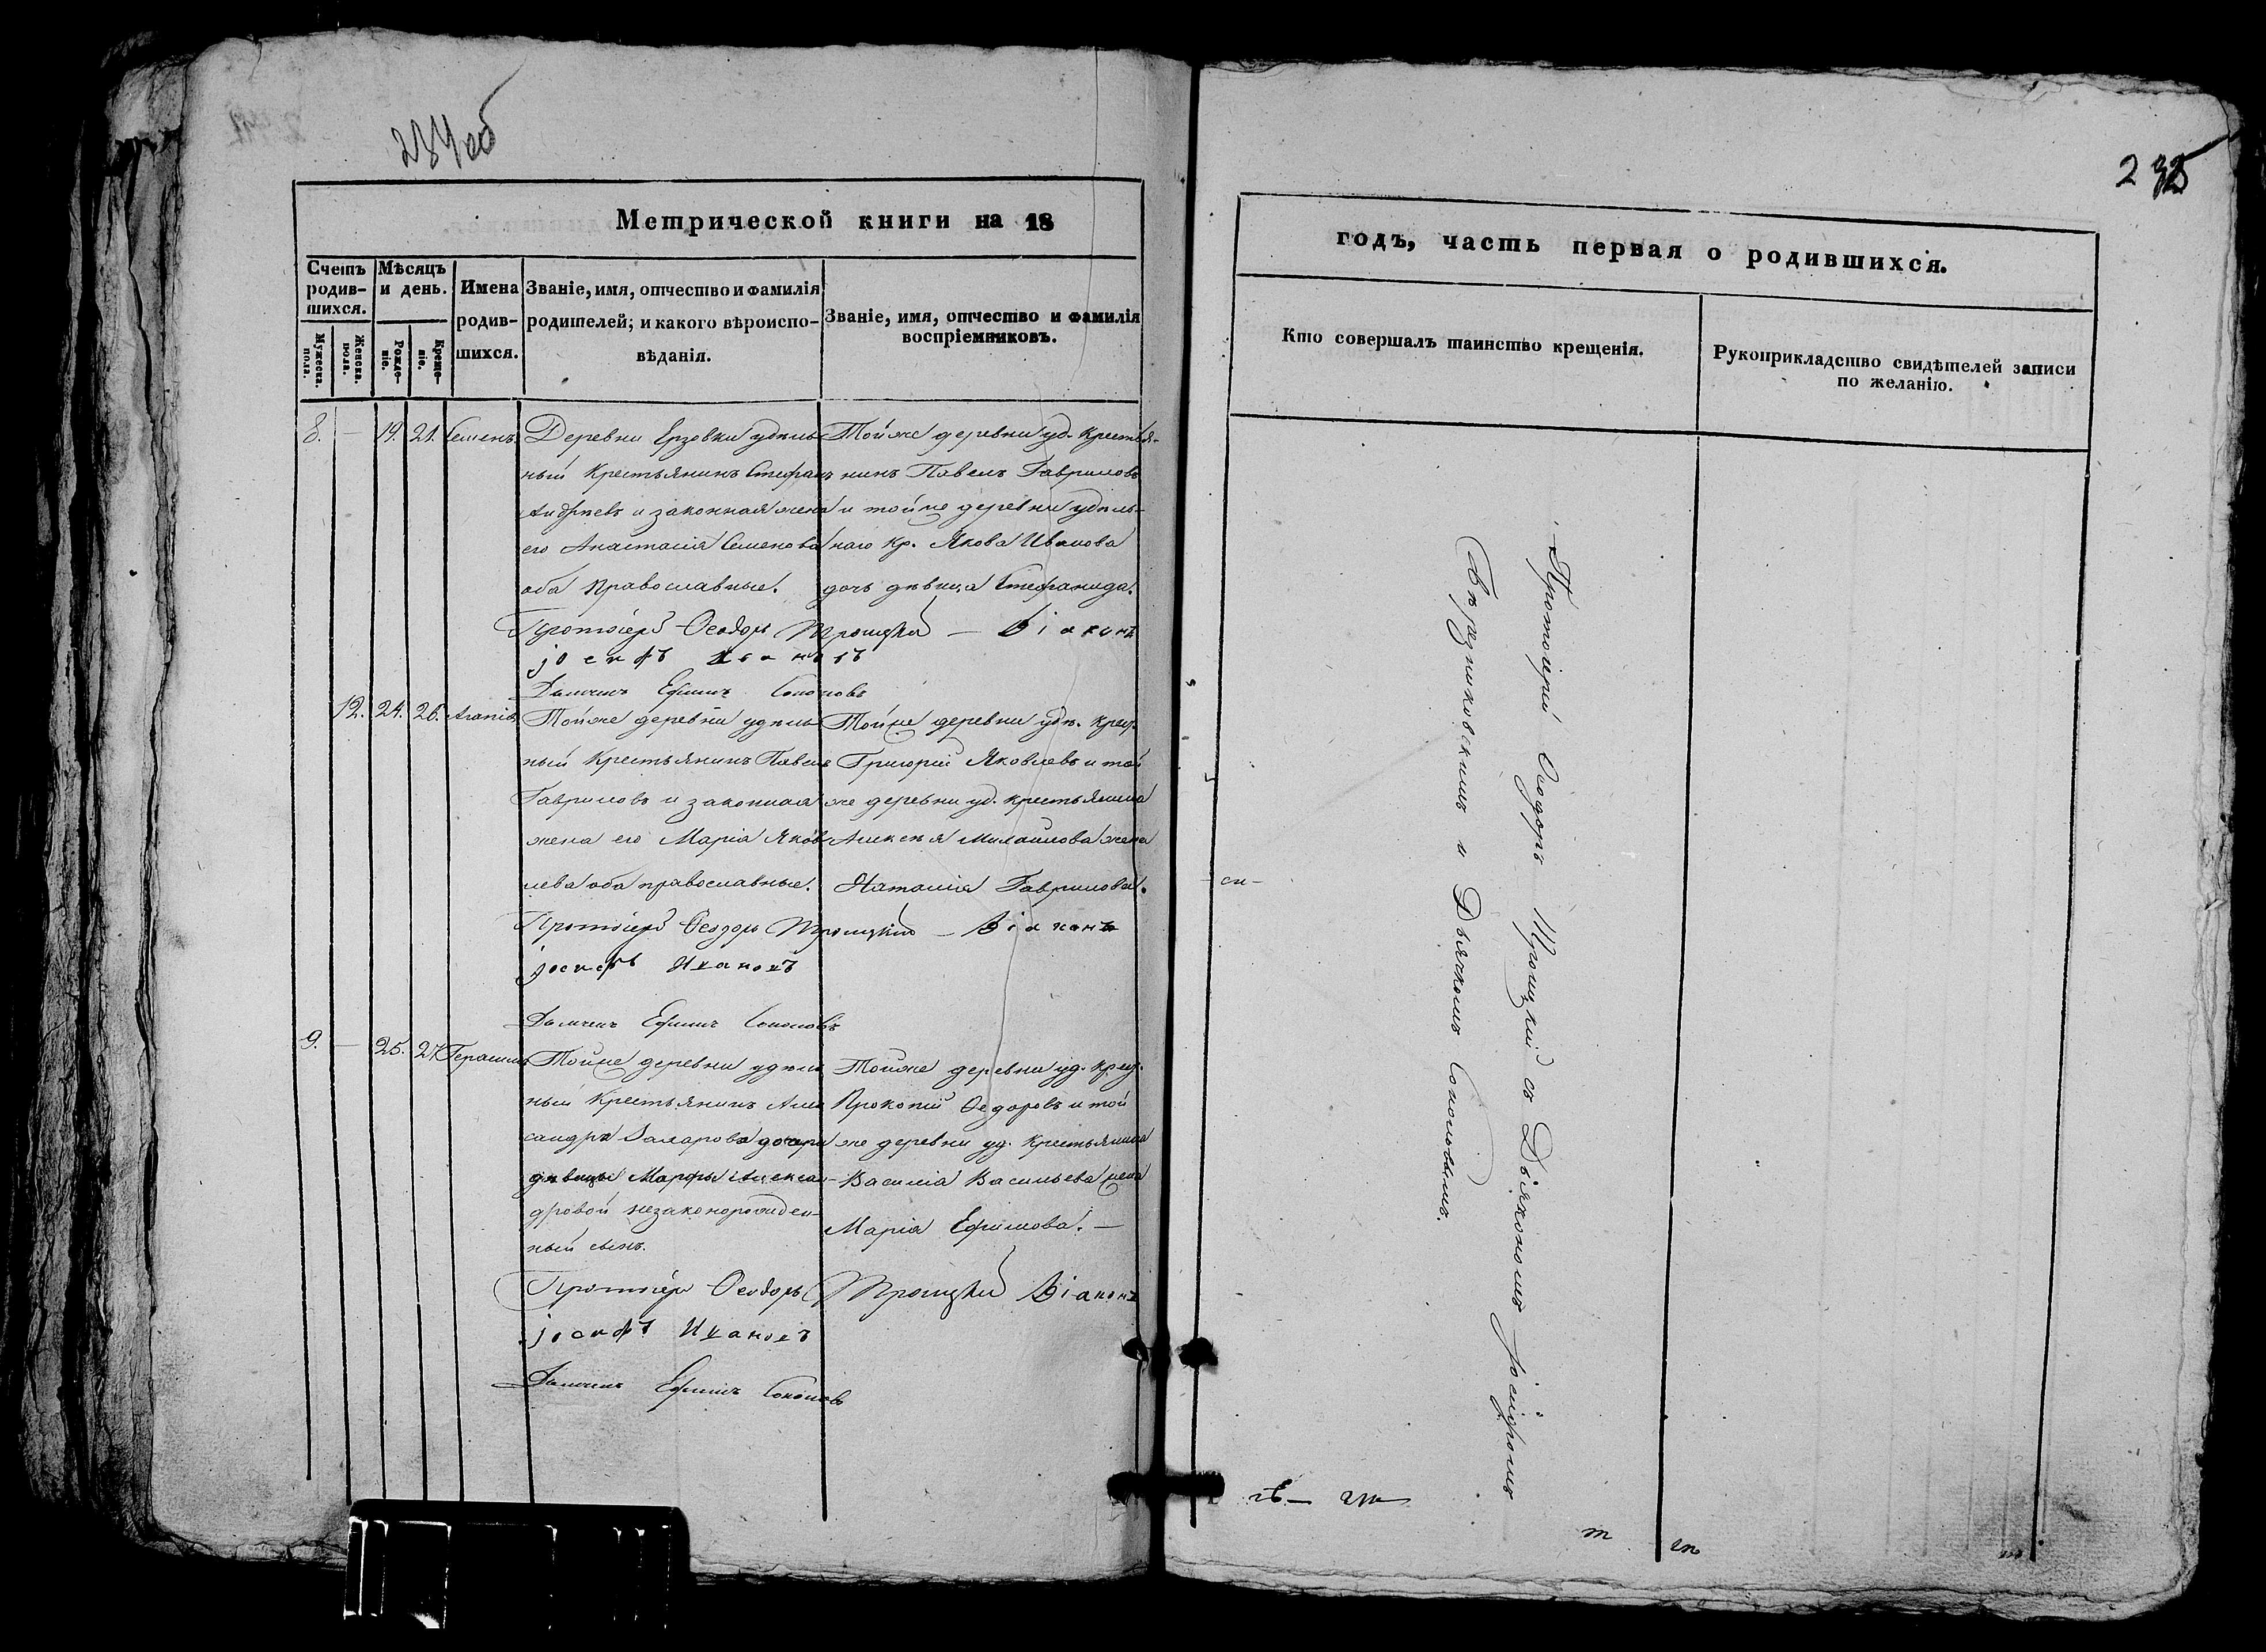 234 об
Метрической книги на 18
Счетъ родив-шихся.
Мужеска. пола.
Женска. пола.
Мѣсяцъ и день.
Рожде-ніе.
Креще-ніе.
Имена родив-шихся.
Званіе, имя, отчество и фамилія
родителей; и какого вѣроиспо-
вѣданія.
Званіе, имя, отчество и фамилія
воспріемниковъ.
8. — 19. 21. Семенъ.
Деревни Ерзовки удѣль-
ный Крестьянинъ Стефанъ
Андреевъ и законная жена
его Анастасія Семенова
оба православные.
Тойже деревни уд. Крестья-
нинъ Павелъ Гавриловъ
и тойже деревни удѣль-
наго Кр. Якова Иванова
дочь дѣвица Стефанида.
Протоіерей Ѳеодоръ Троицкій — Діаконъ
Іосифъ Ивановъ
Дьячекъ Ефимъ Соколовъ
12. 24. 26. Агапія
Тойже деревни удѣль-
ный Крестьянинъ Павелъ
Гавриловъ и законная
жена его Марія Яков-
лева оба православные.
Тойже деревни удѣ. Крест.
Григорій Яковлевъ и той
же деревни уд. крестьянина
Алексѣя Михайлова жена
Наталія Гаврилова.
Протоіерей Ѳеодоръ Троицкій — Діаконъ
Іосифъ Ивановъ
Дьячекъ Ефимъ Соколовъ
9. — 25. 27. Герасимъ
Тойже деревни удѣль
ный Крестьянинъ Алек
сандра Захарова дочери
дѣвицы Марфы Алексан-
дровой незаконорожден-
ный сынъ.
Тойже деревни уд. Крест.
Прокопій Ѳедоровъ и той
же деревни уд. Крестьянина
Василія Васильева жена
Марія Ефимова. —
Протоіерей Ѳеодоръ Троицкій Діаконъ
Іосифъ Ивановъ
Дьячекъ Ефимъ Соколовъ
235
годъ, часть первая о родившихся.
Кто совершалъ таинство крещенія.
Рукоприкладство свидѣтелей записи
по желанію.
Протоіерей Ѳеодоръ Троицкій съ Діякономъ Іосифомъ
и Дьячкомъ Соколовымъ.